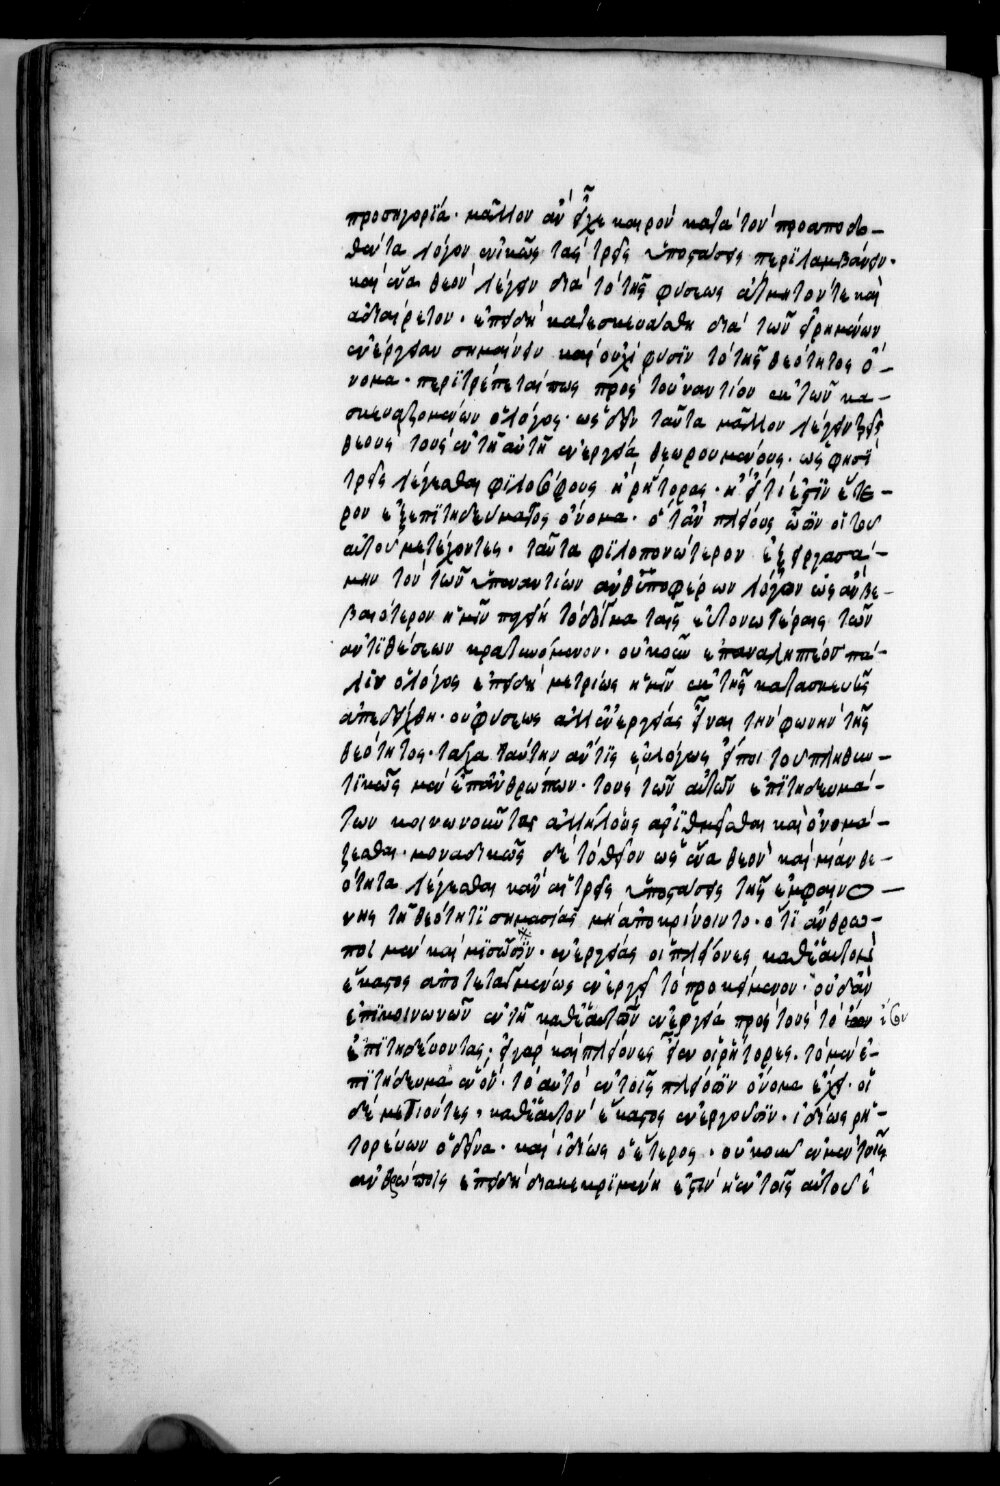 προσηγορία· μᾶλλον ἂν εἶχε καιρὸν κατὰ τὸν προαποδο-
θέντα λόγον ἑνικῶς τὰς τρεῖς ὑποστάσεις περιλαμβάνειν·
καὶ ἕνα θεὸν λέγειν διὰ τὸ τῆς φύσεως ἄτμητόν τε καὶ
ἀδιαίρετον· ἐπειδὴ κατεσκευάσθη διὰ τῶν εἰρημένων
ἐνέργειαν σημαίνειν καὶ οὐχὶ φύσιν τὸ τῆς θεότητος ὄ-
νομα· περιτρέπεταί πως πρὸς τοὐναντίον ἐκ τῶν κα-
σκευαζομένων ὁ λόγος· ὡς δεῖν ταῦτα μᾶλλον λέγειν τρεῖς
θεοὺς τοὺς ἐν τῇ αὐτῇ ἐνεργείᾳ θεωρουμένους· ὥς φησι
τρεῖς λέγεσθαι φιλοσόφους ἢ ῥήτορας· ἢ εἴ τι ἐστὶν ἕτε-
ρον ἐξ ἐπιτηδεύματος ὄνομα· ὅταν πλείους ὦσιν οἱ τοῦ
αὐτοῦ μετέχοντες· ταῦτα φιλοπονώτερον ἐξειργασά-
μην τὸν τῶν ὑπεναντίων ἀνθυποφέρων λόγον ὡς ἂν βε-
βαιότερον ἡμῖν παγείη τὸ δόγμα ταῖς εὐτονωτέραις τῶν
ἀντιθέσεων κρατυνόμενον· οὐκοῦν ἐπαναληπτέον πά-
λιν ὁ λόγος ἐπειδὴ μετρίως ἡμῖν ἐκ τῆς κατασκευῆς
ἀπεδείχθη· οὐ φύσεως ἀλλ' ἐνεργείας εἶναι τὴν φωνὴν τῆς
θεότητος· τάχα ταύτην ἄν τις εὐλόγως εἴποι τοῦ πληθυν-
τικῶς μὲν ἐπ' ἀνθρώπων· τοὺς τῶν αὐτῶν ἐπιτηδευμά-
των κοινωνοῦντας ἀλλήλοις ἀριθμεῖσθαι καὶ ὀνομά-
ζεσθαι· μοναδικῶς δὲ τὸ θεῖον ὡς ἕνα θεὸν καὶ μίαν θε-
ότητα λέγεσθαι κἂν αἱ τρεῖς ὑποστάσεις τῆς ἐμφαινο-
νης τῇ θεότητι σημασίας μὴ ἀποκρίνοιντο· ὅτι ἄνθρω-
ποι μὲν κἂν μιᾶς ὦσιν· ἐνεργείας οἱ πλείονες καθ' ἑαυτὸν
ἕκαστος ἀποτεταγμένως ἐνεργεῖ τὸ προκείμενον· οὐδὲν
ἐπικοινωνῶν ἐν τῇ καθ' ἑαυτὸν ἐνεργείᾳ πρὸς τοὺς τὸ ἴσον ἴσον
ἐπιτηδεύοντας· εἰ γὰρ καὶ πλείονες εἶεν οἱ ῥήτορες· τὸ μὲν ἐ-
πιτήδευμα ἓν ὂν· τὸ αὐτὸ ἐν τοῖς πλείοσιν ὄνομα ἔχει· οἱ
δὲ μετιόντες· καθ' ἑαυτὸν ἕκαστος ἐνεργοῦσιν· ἰδίως ῥη-
τορεύων ὁ δεῖνα· καὶ ἰδίως ὁ ἕτερος· οὐκοῦν ἐν μὲν τοῖς
ἀνθρώποις ἐπειδὴ διακεκριμένη ἐστὶν ἡ ἐν τοῖς αὐτοῖς ἐ